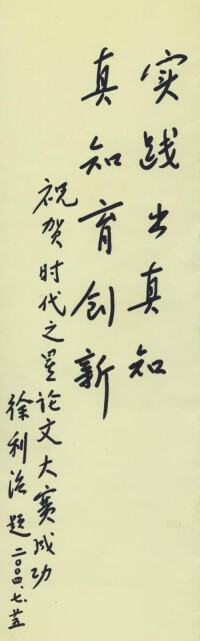 实践出真知
真知育创新
祝贺时代之星论文大赛成功
徐利治 题 二〇〇四.七.廿五